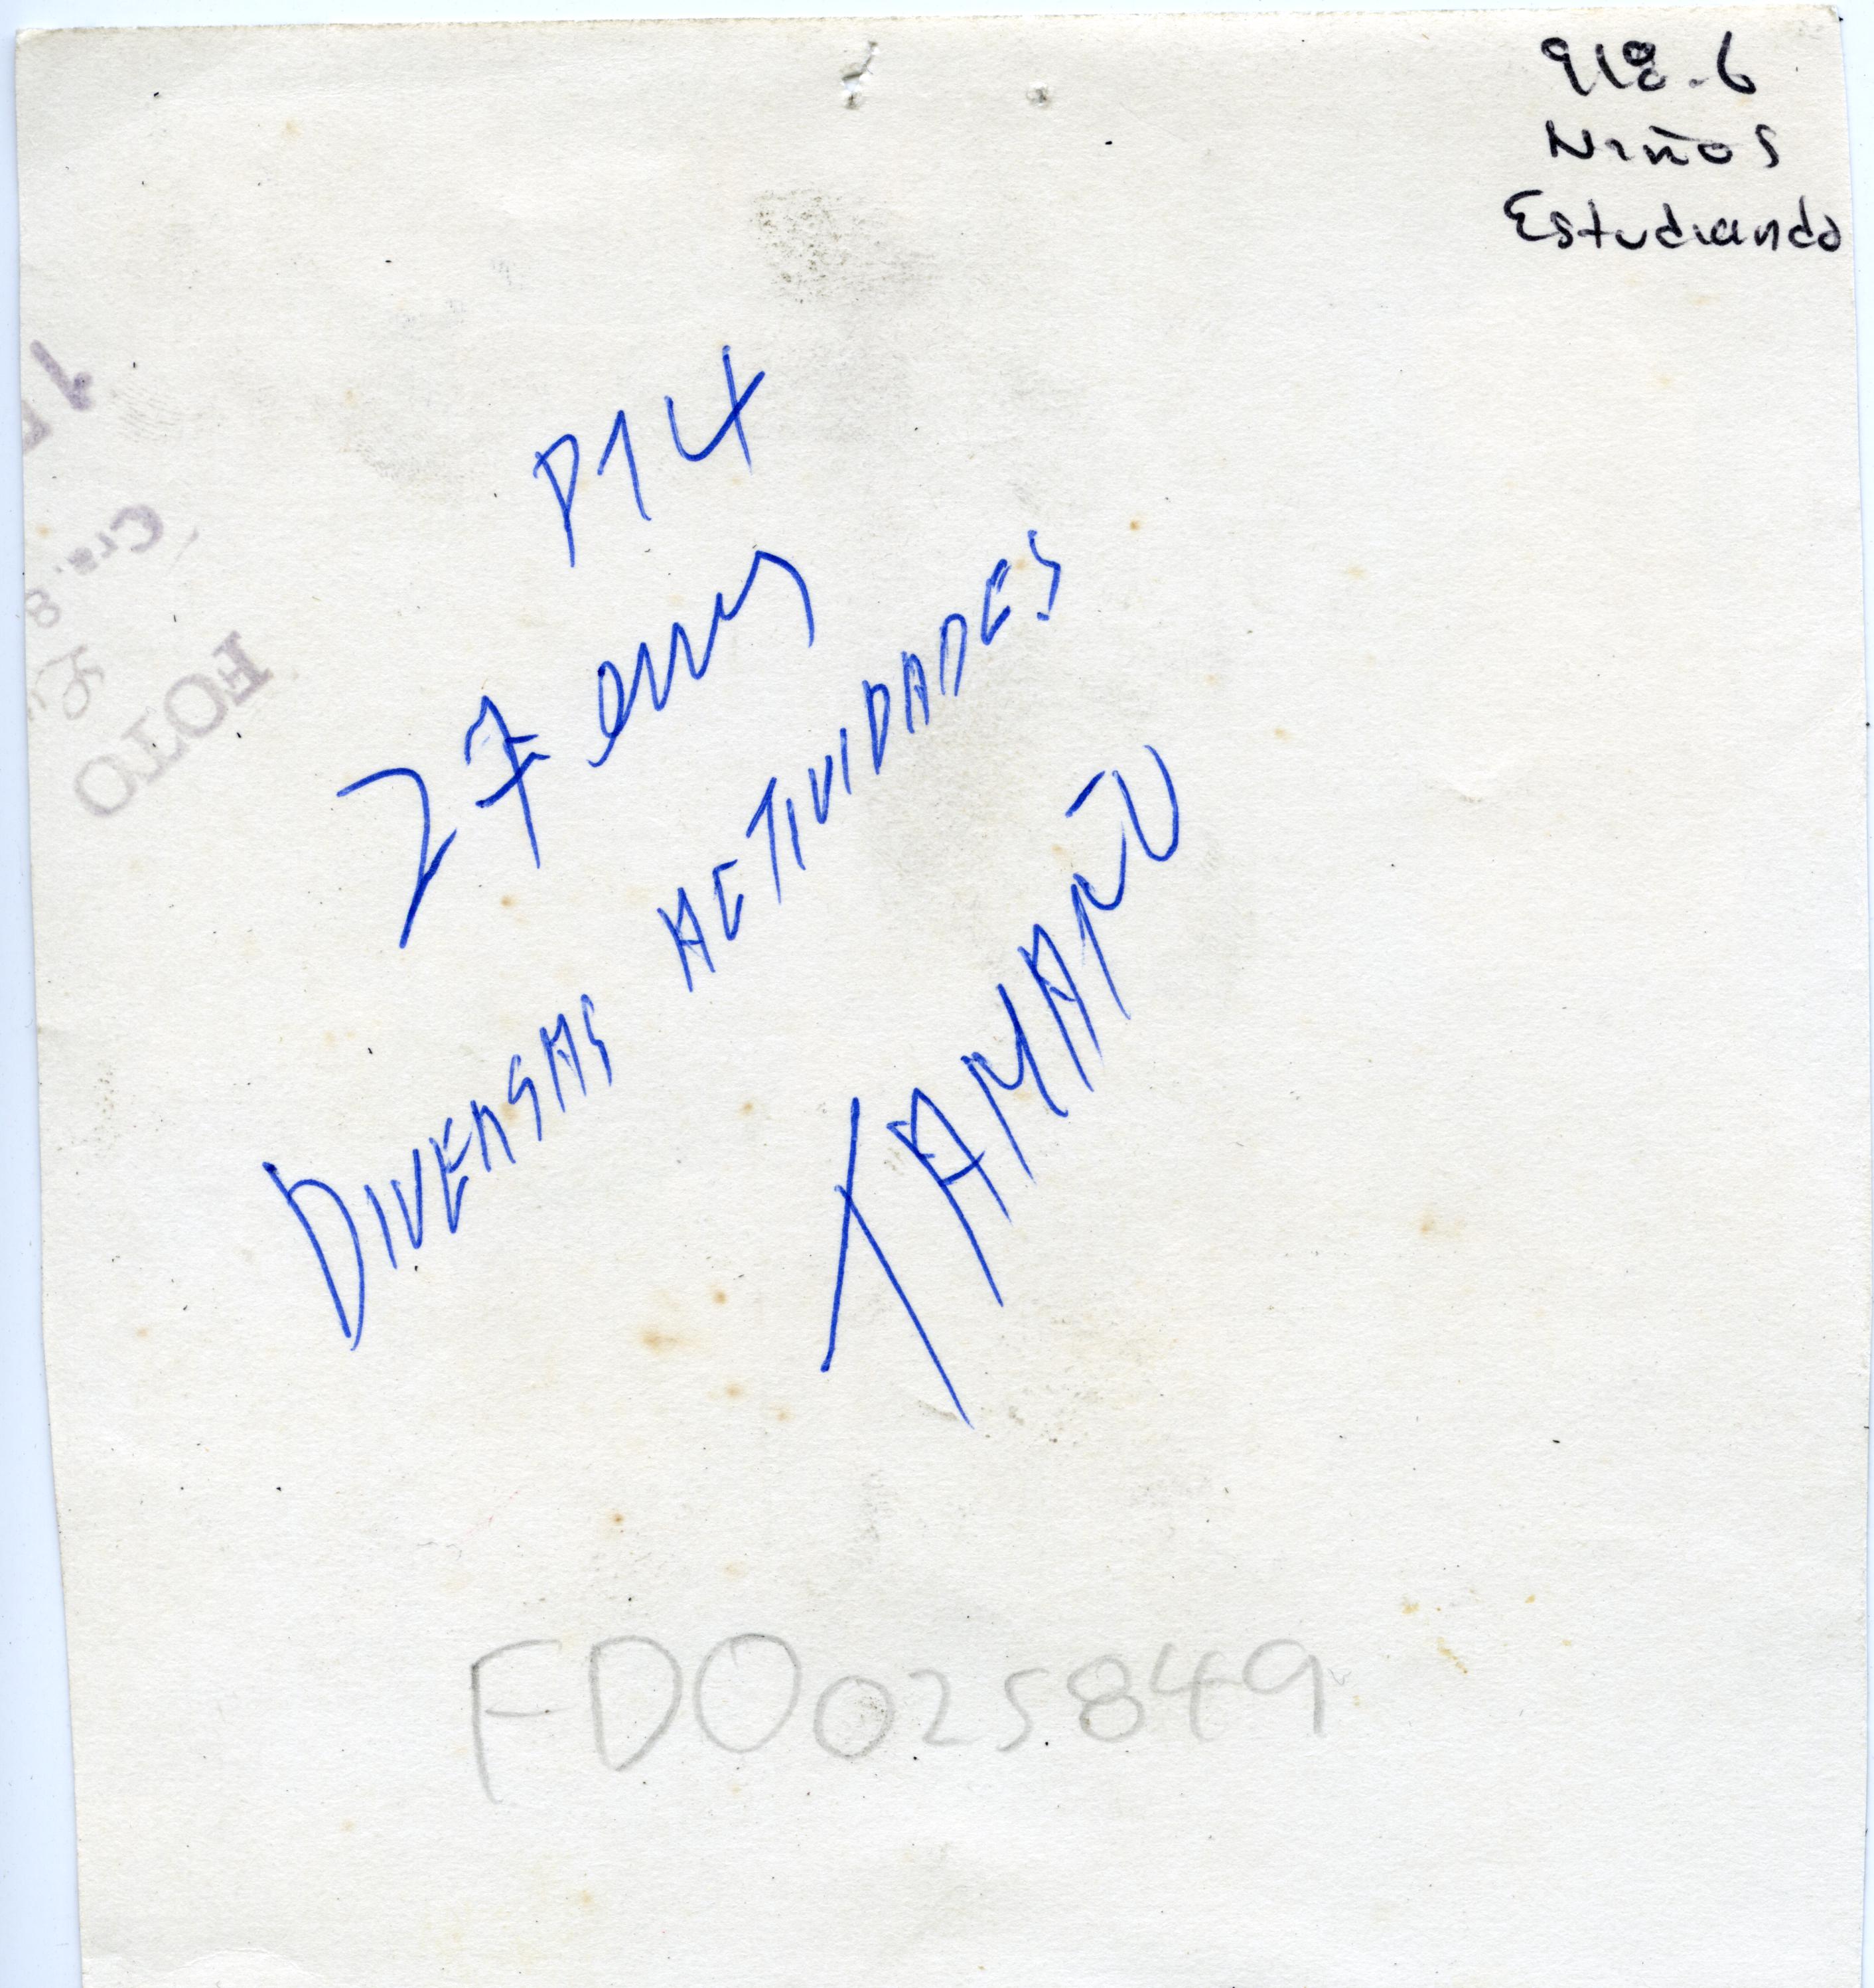 918-6
Niños
Estudiando
P14
27 ems
DIVERSAS ACTIVIDADES
TAMAÑO
Cra. 8
FOTO
FDO025849